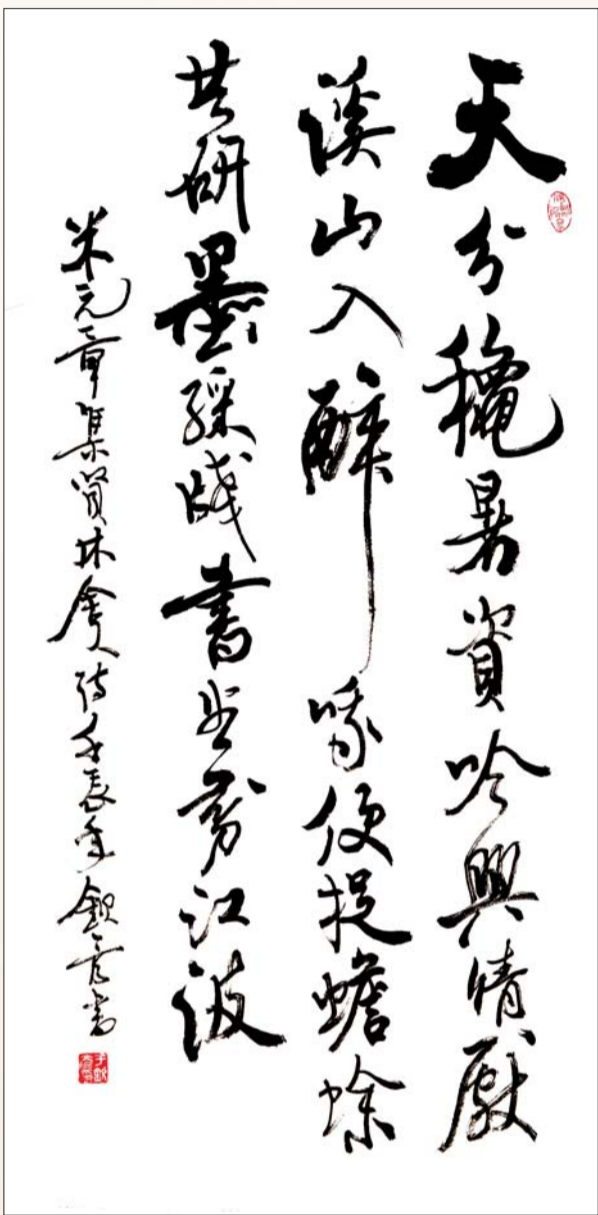 天分穐暑資吟興晴獻
溪山入醉哦便捉蟾蜍
共研墨綵牋書盡剪江波
米元章集賢林舍人詩壬辰年欽書